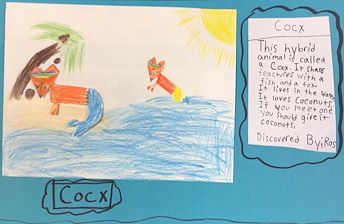 Cocx
This hybrid
animal is called
a Cocx. It shares
feactures with a
fish and a fox.
It lives in the water.
It loves coconuts.
If you meet one
you should give it
coconuts.
Discovered By:
Cocx